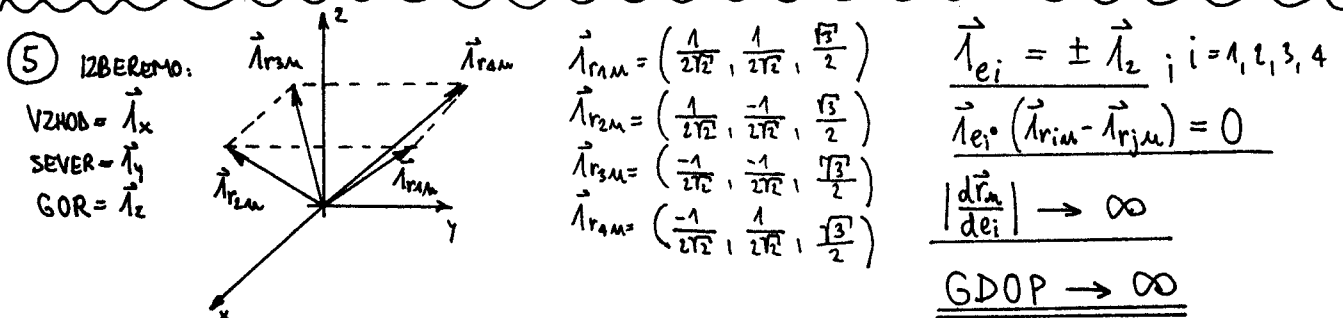 ⑤ IZBEREMO:
VZHOD = 1⃗x
SEVER = 1⃗y
GOR = 1⃗z
z
1⃗r3M
1⃗r4M
1⃗r2M
1⃗r1M
y
x
1⃗r1M = (1/(2√2), 1/(2√2), √3/2)
1⃗r2M = (1/(2√2), -1/(2√2), √3/2)
1⃗r3M = (-1/(2√2), -1/(2√2), √3/2)
1⃗r4M = (-1/(2√2), 1/(2√2), √3/2)
1⃗ei = ± 1⃗z ; i = 1, 2, 3, 4
1⃗ei · (1⃗riM - 1⃗rjM) = 0
|dr⃗M/dei| → ∞
GDOP → ∞